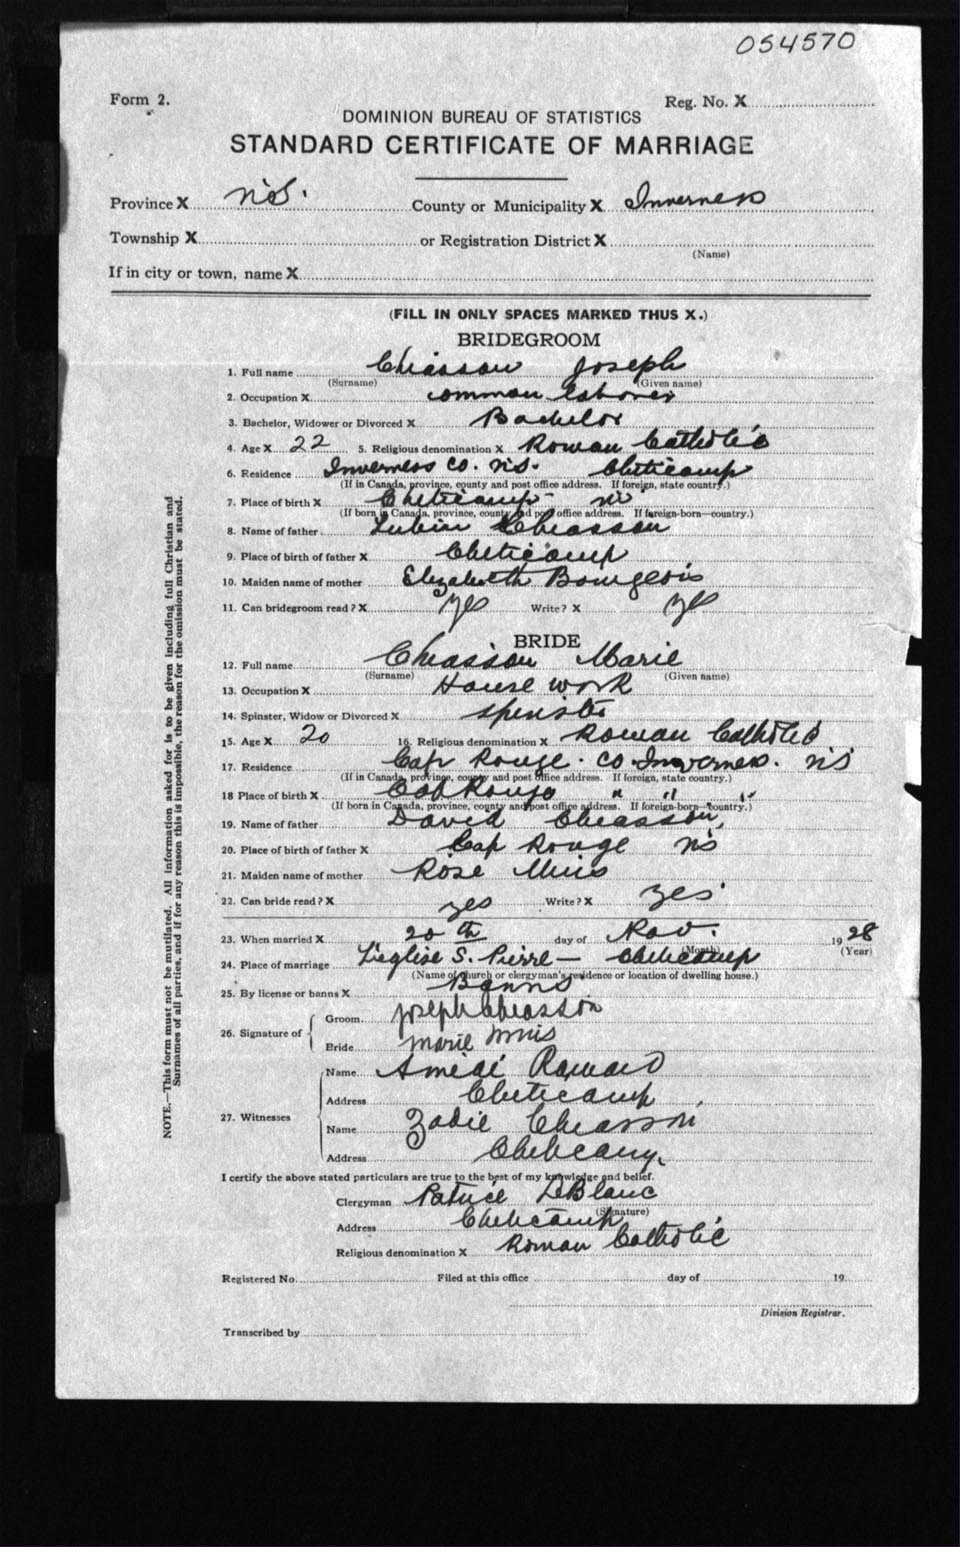 054570
Form 2.
Reg. No. X
DOMINION BUREAU OF STATISTICS
STANDARD CERTIFICATE OF MARRIAGE
Province X N.S. County or Municipality X Inverness
Township X or Registration District X
(Name)
If in city or town, name X
(FILL IN ONLY SPACES MARKED THUS X.)
BRIDEGROOM
1. Full name Chiasson Joseph
(Surname) (Given name)
2. Occupation X common laborer
3. Bachelor, Widower or Divorced X Bachelor
4. Age X 22 5. Religious denomination X Roman Catholic
6. Residence Inverness Co. N.S. Cheticamp
(If in Canada, province, county and post office address. If foreign, state country.)
7. Place of birth X Cheticamp -
(If born in Canada, province, county and post office address. If foreign-born—country.)
8. Name of father Lubin Chiasson
9. Place of birth of father X Cheticamp
10. Maiden name of mother Elizabeth Bourgeois
11. Can bridegroom read? X yes Write? X yes
BRIDE
12. Full name Chiasson Marie
(Surname) (Given name)
13. Occupation X House work
14. Spinster, Widow or Divorced X
15. Age X 20 16. Religious denomination X Roman Catholic
17. Residence Cap Rouge. Co. Inverness. N.S
(If in Canada, province, county and post office address. If foreign, state country.)
18 Place of birth X Cap Rouge " " "
(If born in Canada, province, county and post office address. If foreign-born—country.)
19. Name of father David Chiasson,
20. Place of birth of father X Cap Rouge N.S
21. Maiden name of mother Rose Muis
22. Can bride read? X yes Write? X yes
23. When married X 20 th day of Nov. 1928
(Month) (Year)
24. Place of marriage L'eglise S. Pierre — Cheticamp
(Name of church or clergyman's residence or location of dwelling house.)
25. By license or banns X Banns
26. Signature of
Groom. joseph Chiasson
Bride marie
27. Witnesses
Name
Address Cheticamp
Name Zadie Chiasson
Address Cheticamp
I certify the above stated particulars are true to the best of my knowledge and belief.
Clergyman Patrice LeBlanc
(Signature)
Address Cheticamp
Religious denomination X Roman Catholic
Registered No. Filed at this office day of 19
Division Registrar.
Transcribed by
NOTE.—This form must not be mutilated. All information asked for is to be given including full Christian and
Surnames of all parties, and if for any reason this is impossible, the reason for the omission must be stated.